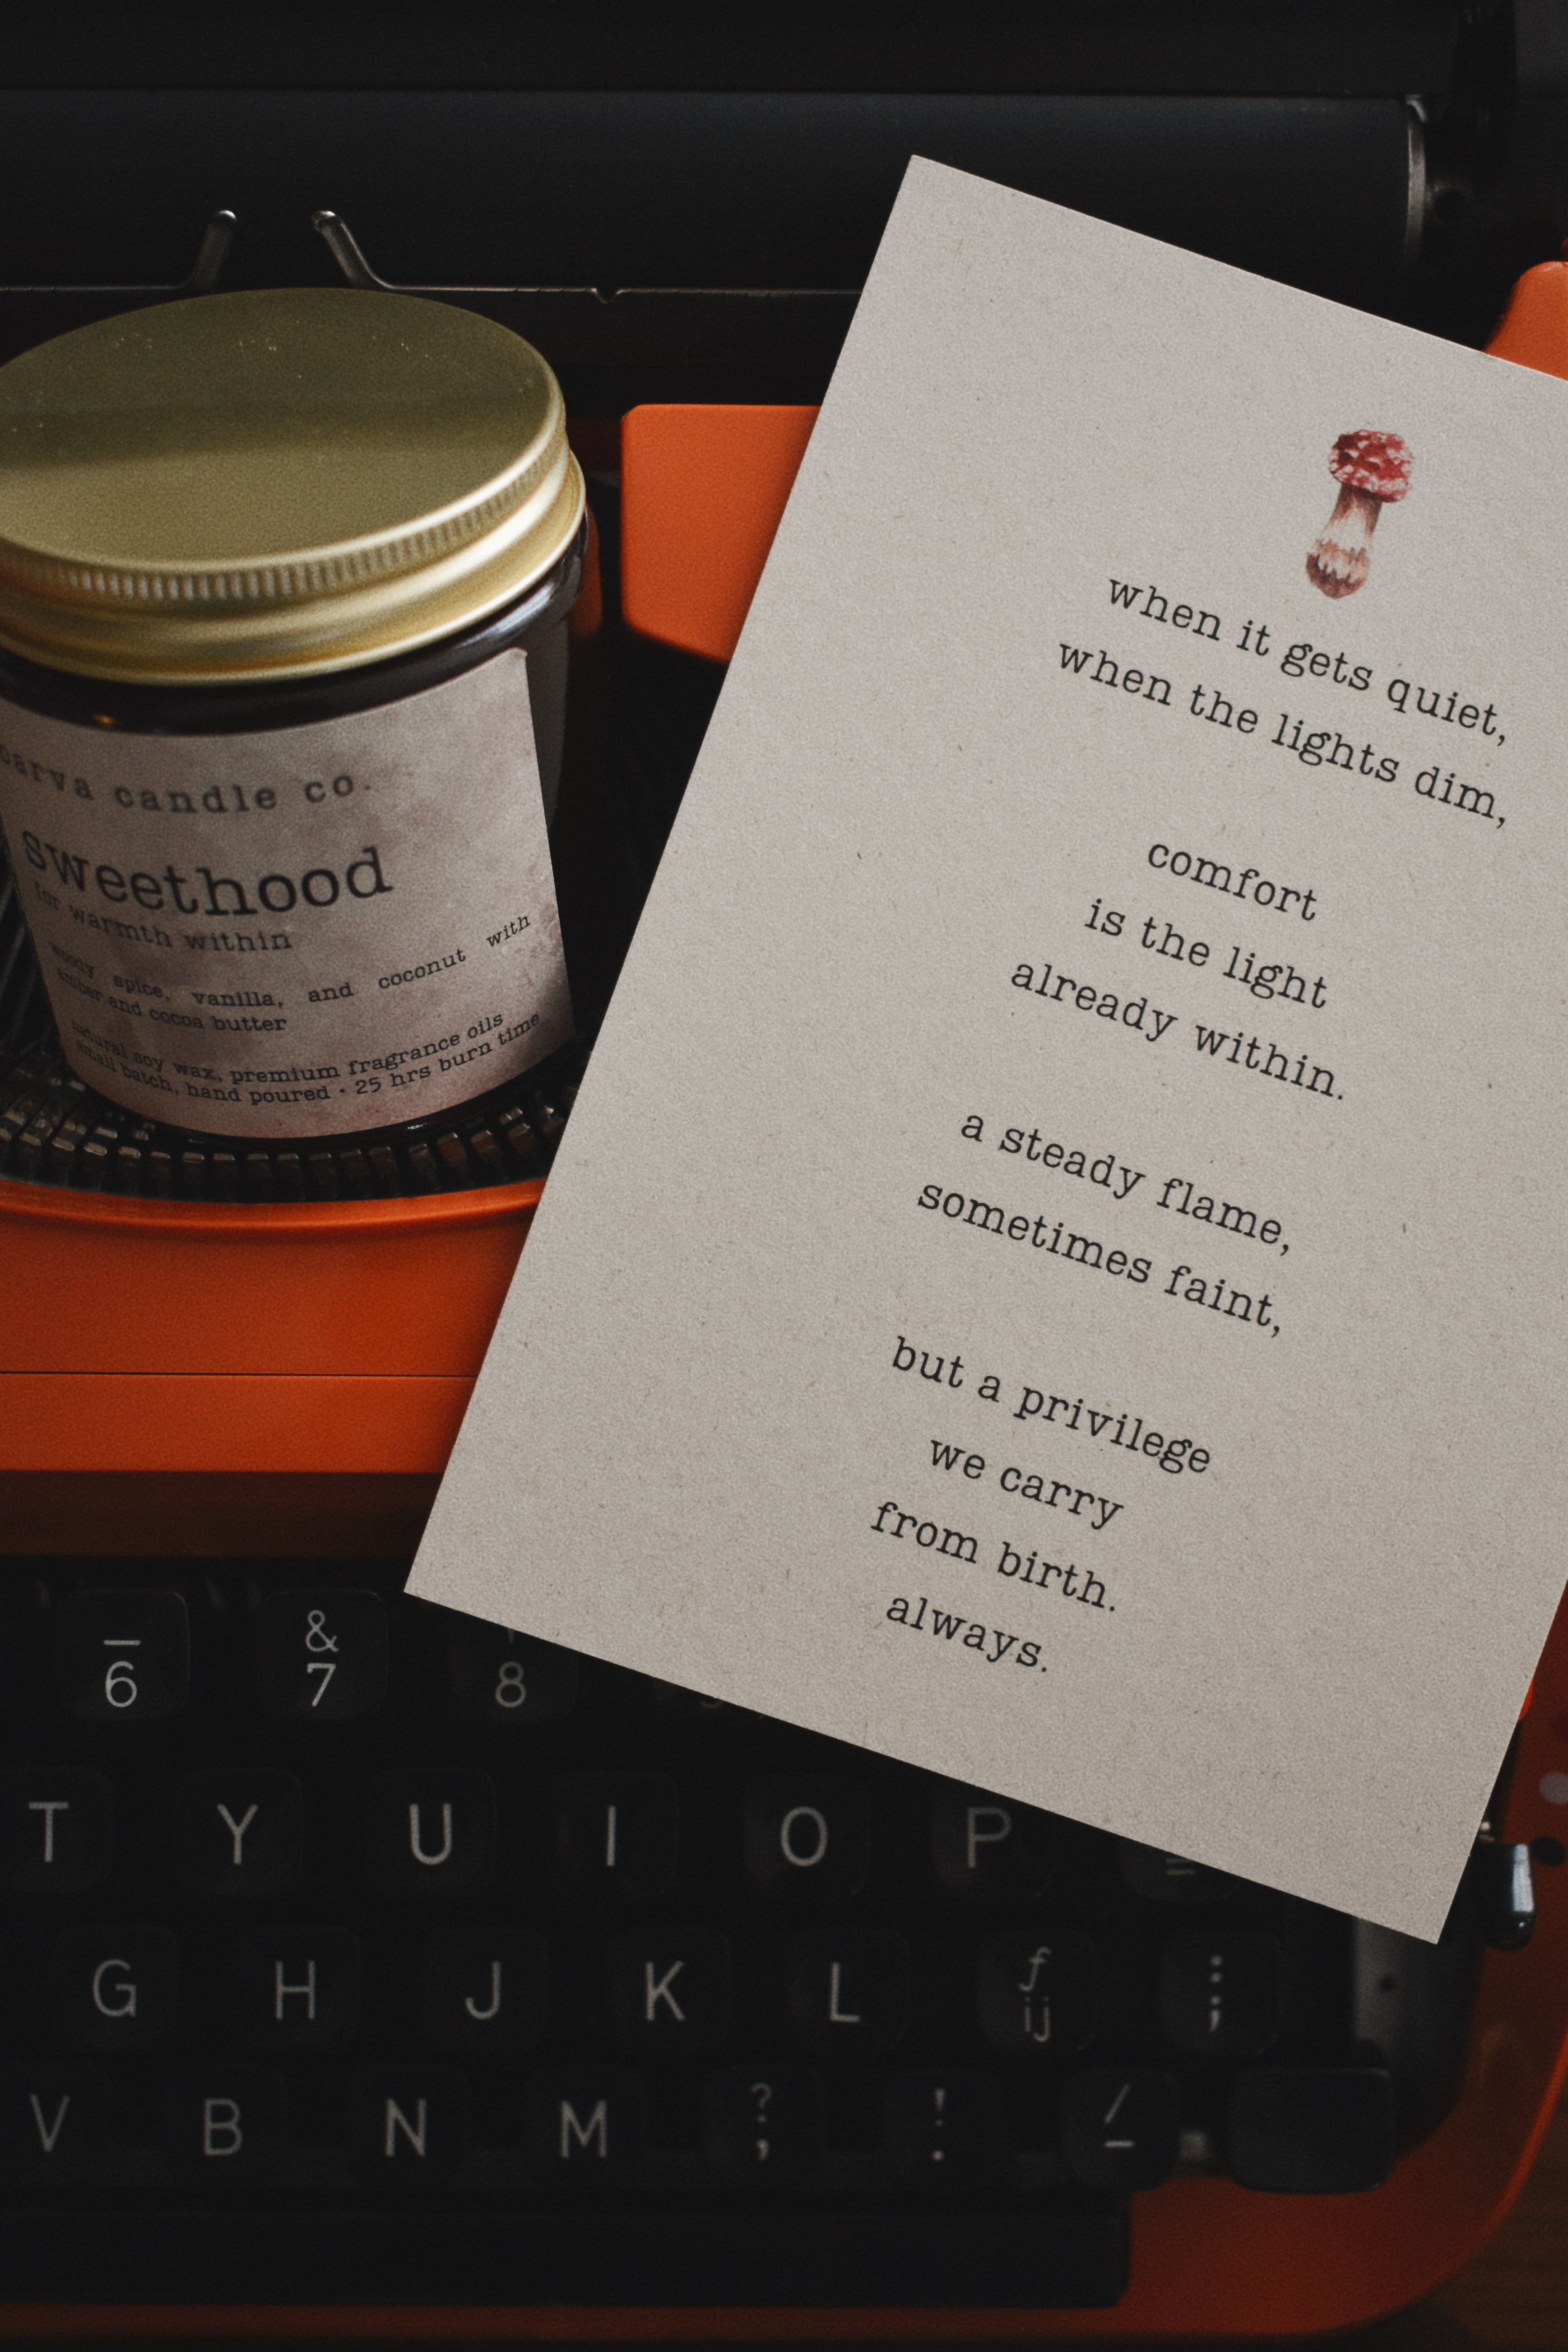 candle co.
sweethood
for warmth within
woody spice, vanilla, and coconut with
amber and cocoa butter
natural soy wax, premium fragrance oils
small batch, hand poured • 25 hrs burn time
when it gets quiet,
when the lights dim,
comfort
is the light
already within.
a steady flame,
sometimes faint,
but a privilege
we carry
from birth.
always.
_ &
6 7 8
T Y U I O P =
G H J K L f ij : ;
V B N M ? , ! . / _